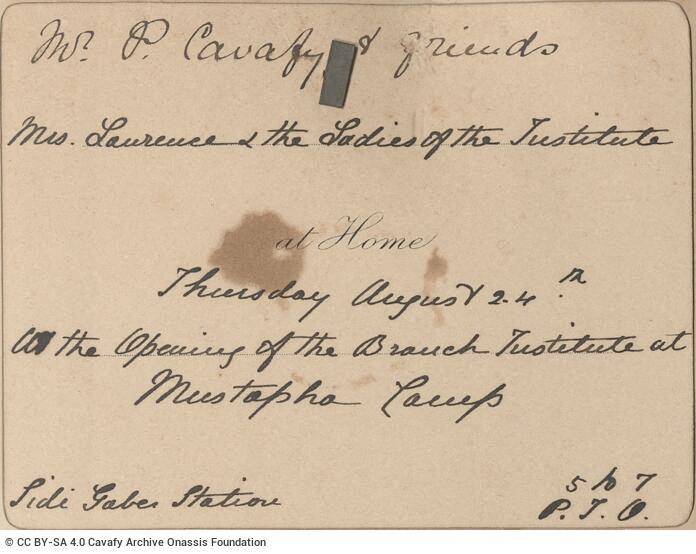 Mr. P. Cavafy & friends
Mrs. Lawrence & the Ladies of the Institute
at Home
Thursday August 24th
At the Opening of the Branch Institute at
Mustapha Camp
Sidi Gaber Station
5 to 7
P.T.O.
© CC BY-SA 4.0 Cavafy Archive Onassis Foundation